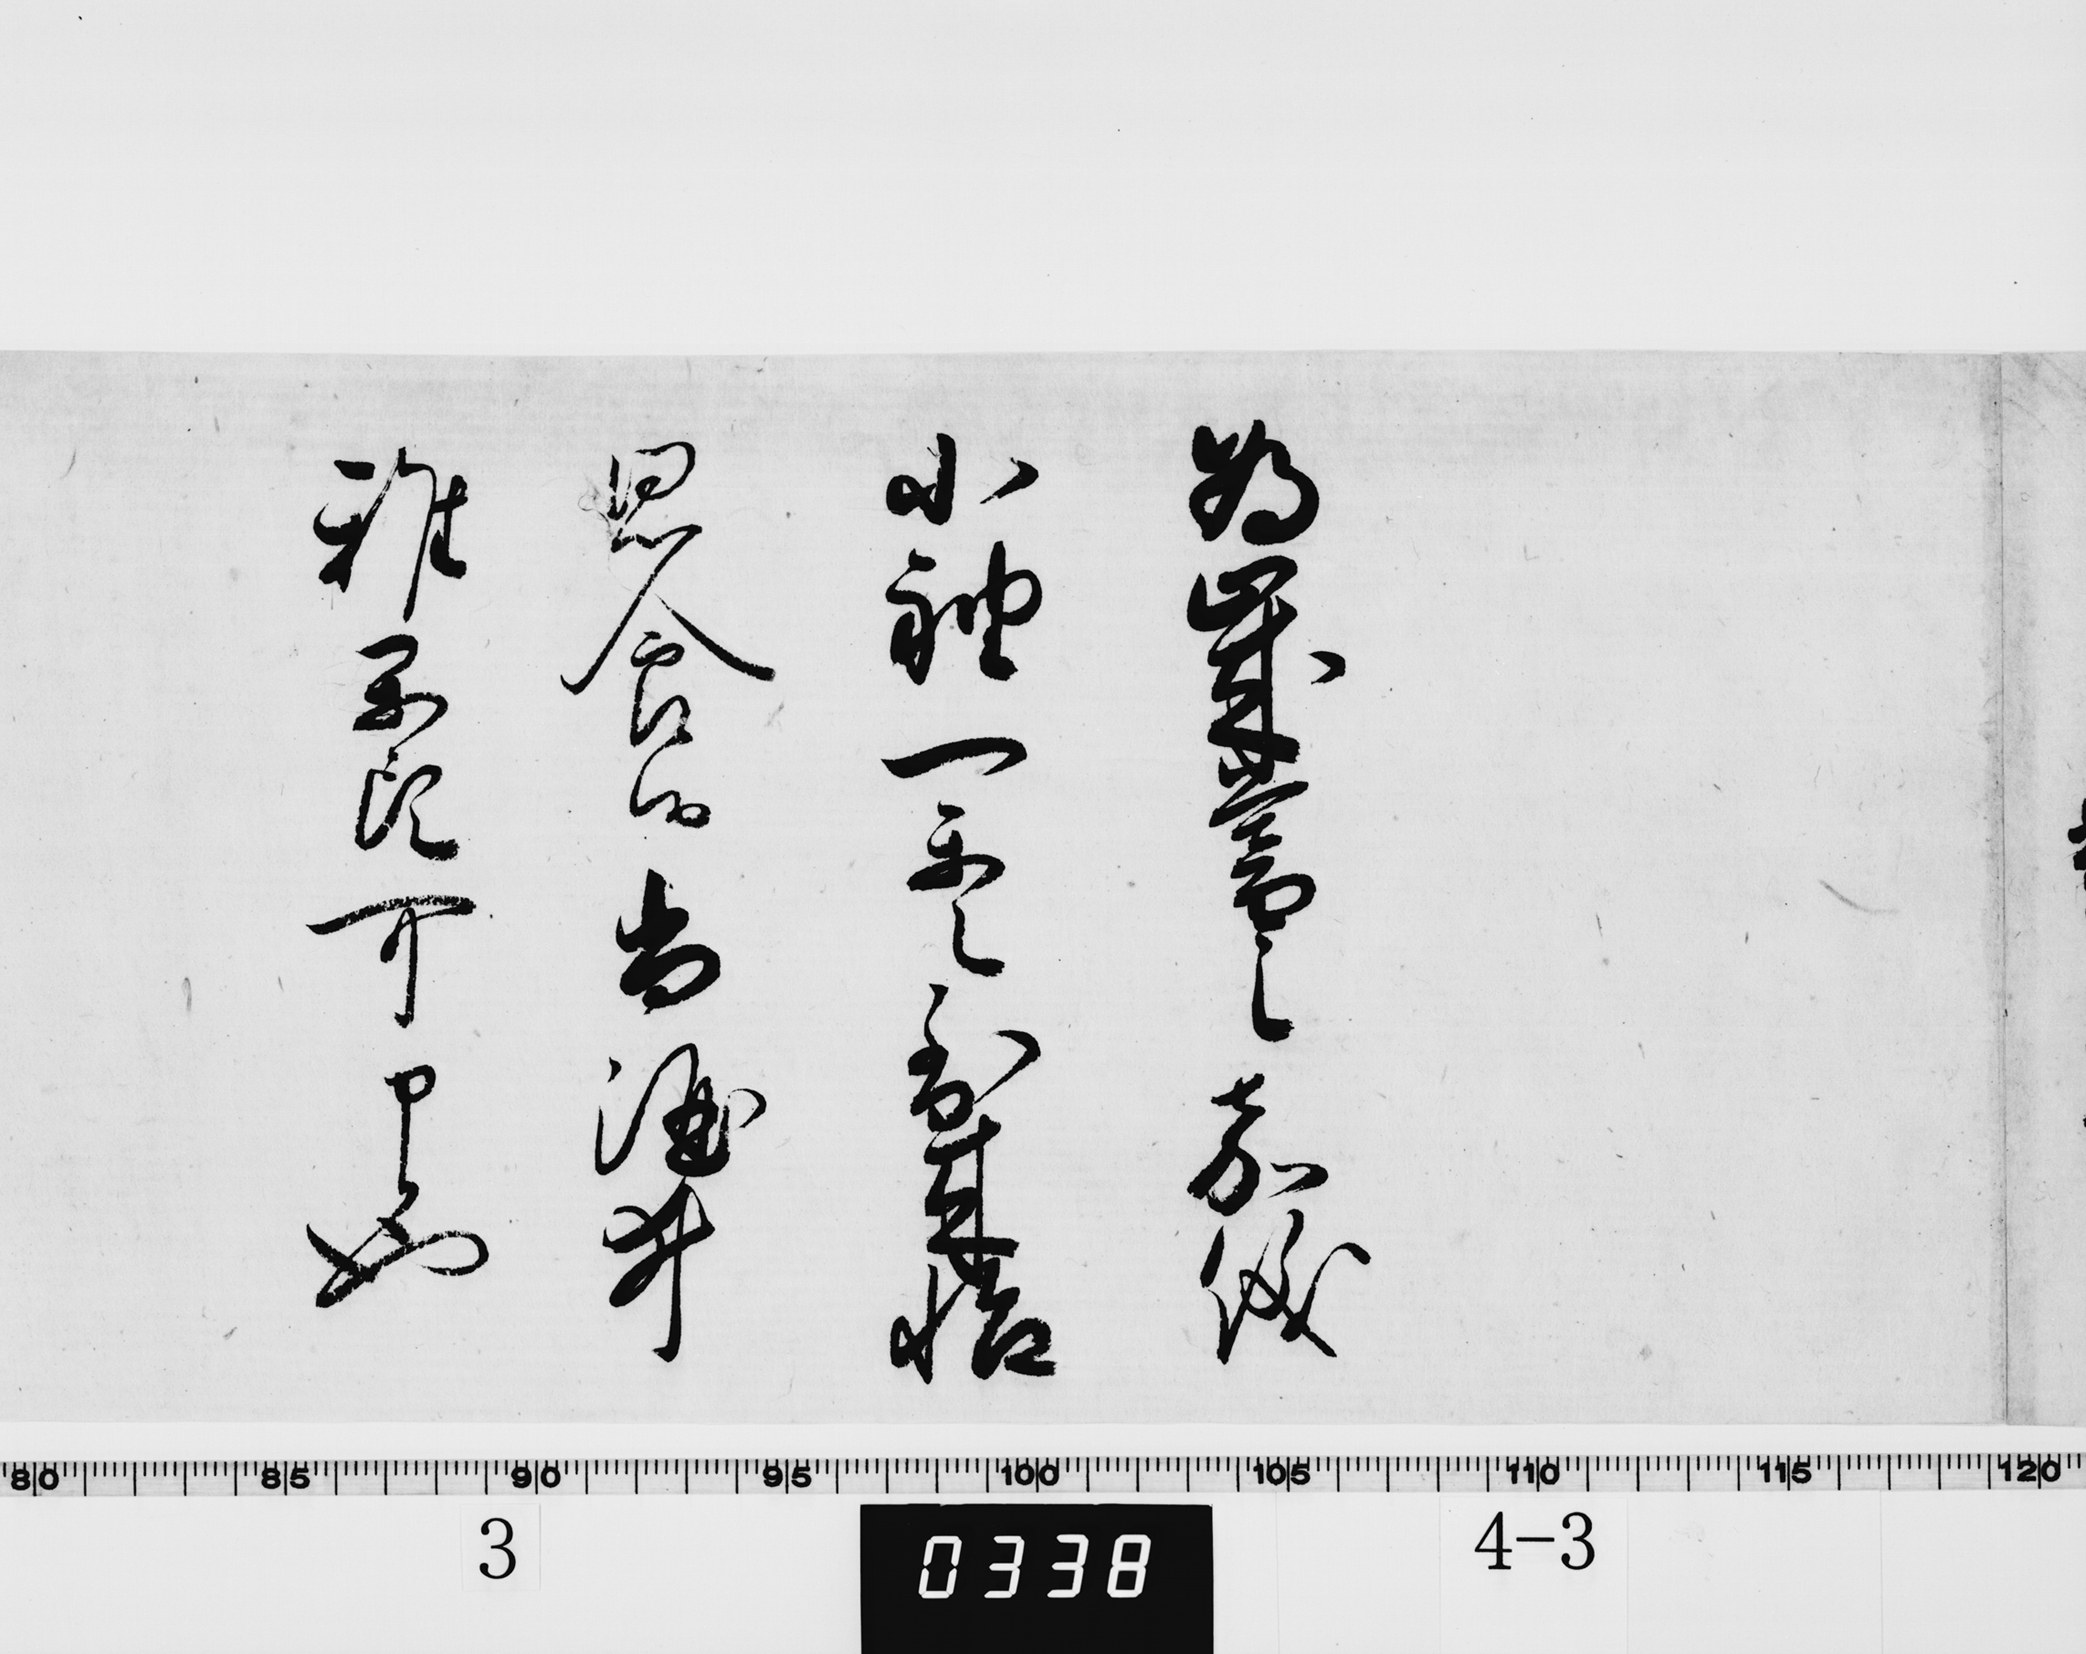 為歳暮之嘉儀
小袖一重之到来悦
思食候尚酒井
雅楽頭可申候
80 85 90 95 100 105 110 115 120
3 0338 4-3